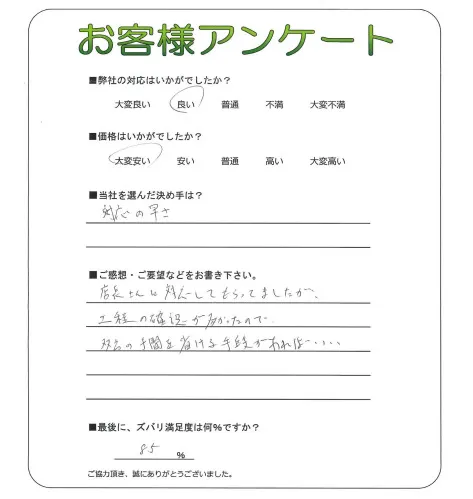 お客様アンケート
■弊社の対応はいかがでしたか？
大変良い 良い 普通 不満 大変不満
■価格はいかがでしたか？
大変安い 安い 普通 高い 大変高い
■当社を選んだ決め手は？
対応の早さ
■ご感想・ご要望などをお書き下さい。
店長さんに対応してもらってましたが、
工程の確認が多かったので
双方の手間を省ける手段があれば・・・・・
■最後に、ズバリ満足度は何%ですか？
85 %
ご協力頂き、誠にありがとうございました。